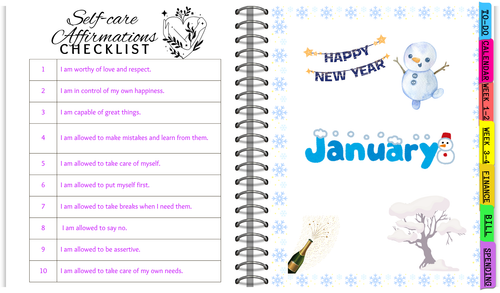 Self-care
Affirmations
CHECKLIST
1 I am worthy of love and respect.
2 I am in control of my own happiness.
3 I am capable of great things.
4 I am allowed to make mistakes and learn from them.
5 I am allowed to take care of myself.
6 I am allowed to put myself first.
7 I am allowed to take breaks when I need them.
8 I am allowed to say no.
9 I am allowed to be assertive.
10 I am allowed to take care of my own needs.
HAPPY
NEW YEAR
January
TO-DO
CALENDAR
WEEK 1-2
WEEK 3-4
FINANCE
BILL
SPENDING